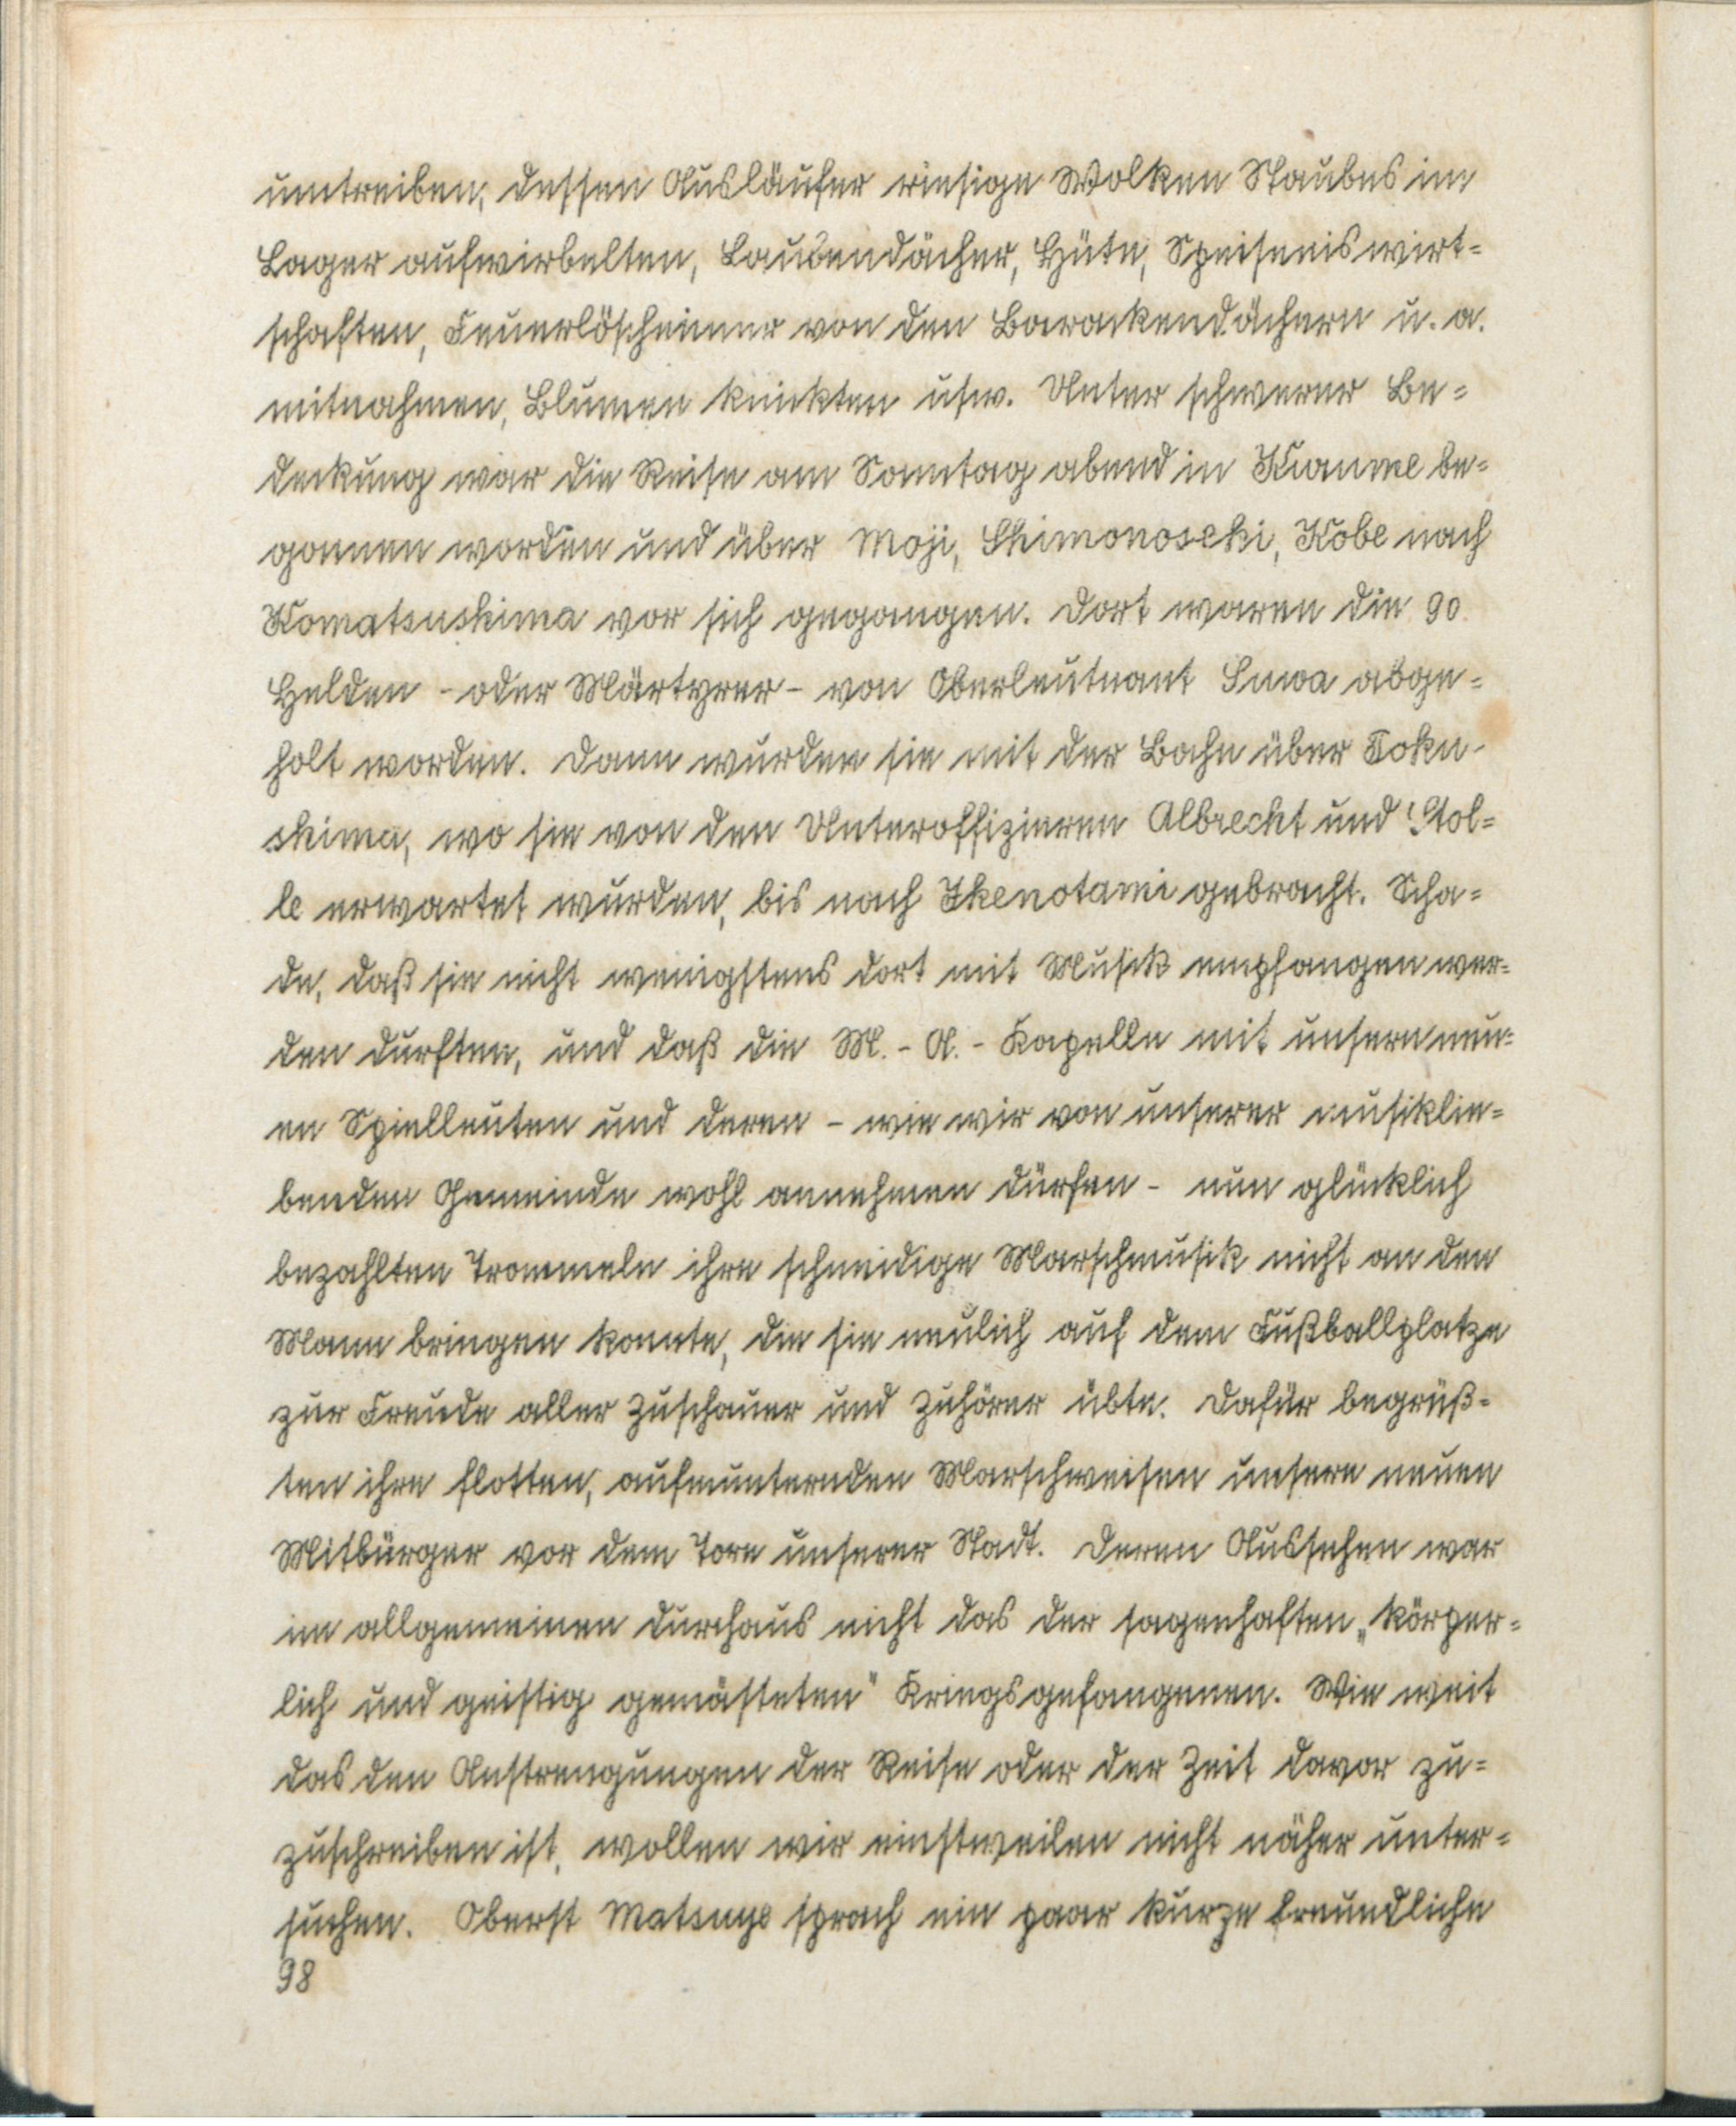 umtreiben, dessen Ausläufer riesige Wolken Staubes im
Lager aufwirbelten, Laubendächer, Hüte, Speiseeiswirt-
schaften, Feuerlöscheimer von den Barackendächern u. a.
mitnahmen, Blumen knickten usw. Unter schwerer Be-
deckung war die Reise am Sonntag abend in Kurume be-
gonnen worden und über Moji, Shimonoseki, Kobe nach
Komatsushima vor sich gegangen. Dort waren die 90
Helden - oder Märtyrer - von Oberleutnant Suwa abge-
holt worden. Dann wurden sie mit der Bahn über Toku-
shima, wo sie von den Unteroffizieren Albrecht und Stol-
le erwartet wurden, bis nach Ikenotani gebracht. Scha-
de, daß sie nicht wenigstens dort mit Musik empfangen wer-
den durften, und daß die M. - A. - Kapelle mit unsern neu-
en Spielleuten und deren - wie wir von unserer musiklie-
benden Gemeinde wohl annehmen dürfen - nun glücklich
bezahlten Trommeln ihre schneidige Marschmusik nicht an den
Mann bringen konnte, die sie neulich auf dem Fußballplatze
zur Freude aller Zuschauer und Zuhörer übte. Dafür begrüß-
ten ihre flotten, aufmunternden Marschweisen unsere neuen
Mitbürger vor dem Tore unserer Stadt. Deren Aussehen war
im allgemeinen durchaus nicht das der sagenhaften „körper-
lich und geistig gemästeten" Kriegsgefangenen. Wie weit
das den Anstrengungen der Reise oder der Zeit davor zu-
zuschreiben ist, wollen wir einstweilen nicht näher unter-
suchen. Oberst Matsuye sprach ein paar kurze freundliche
98